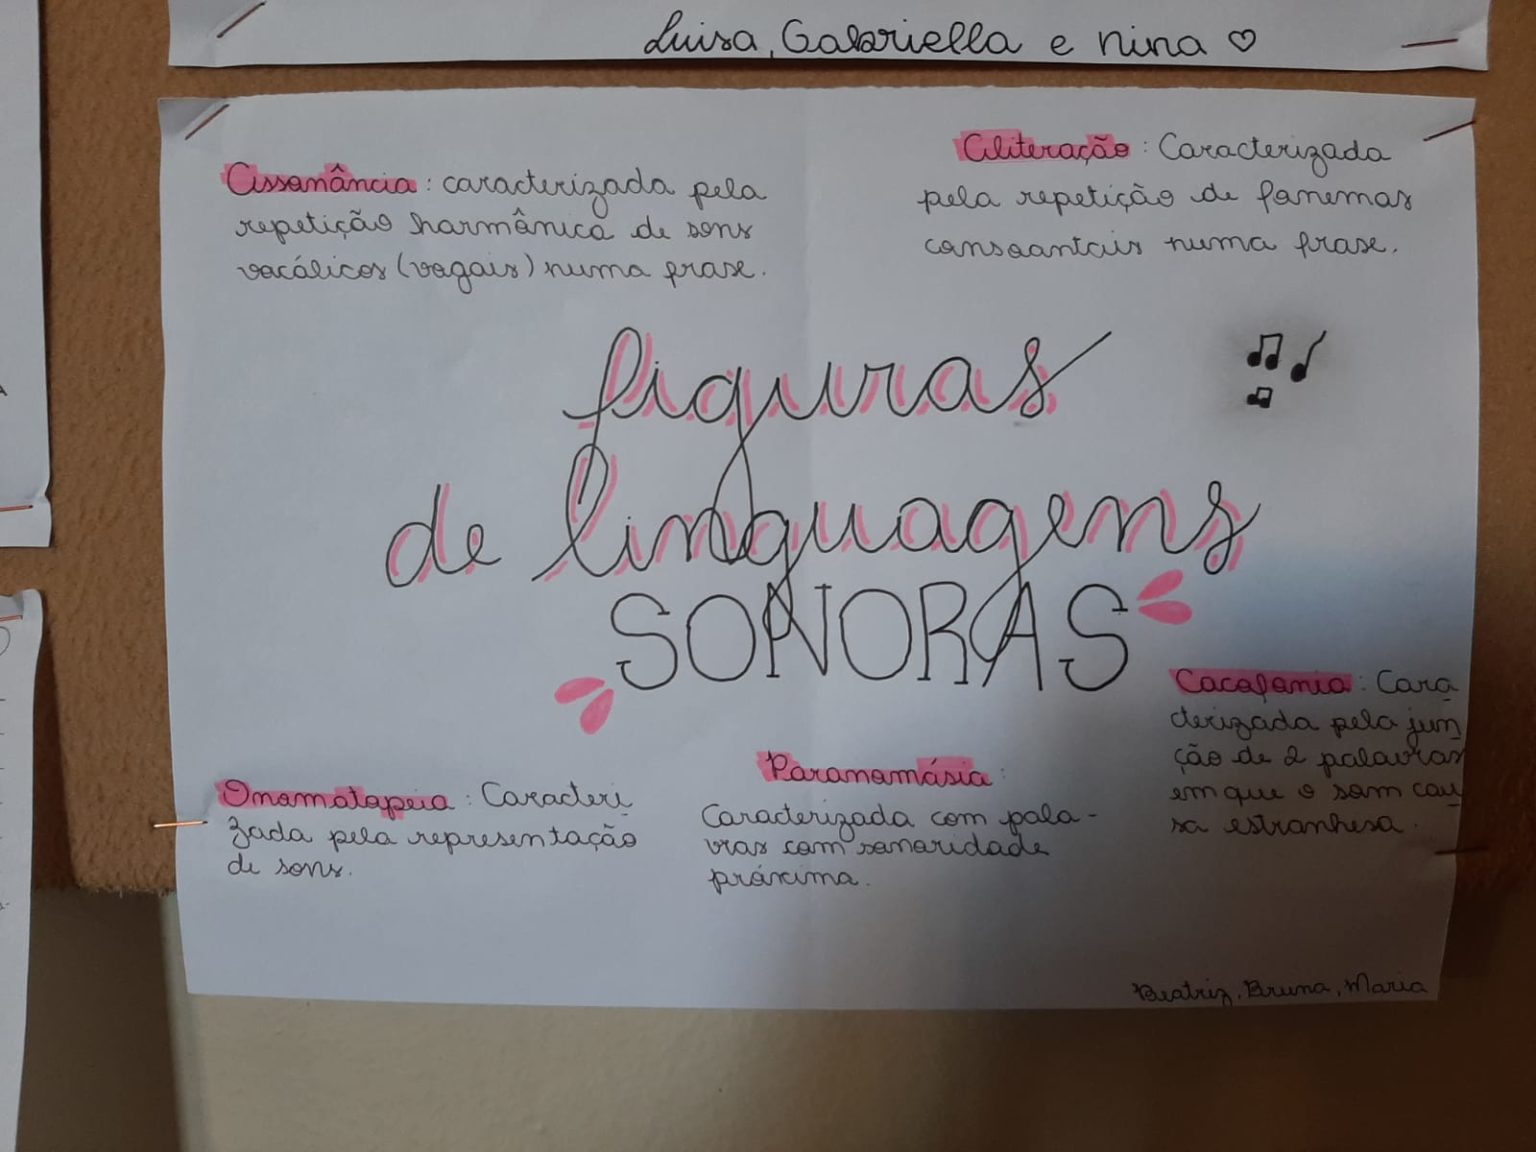 Luisa, Gabriella e nina ♡
Assonância: caracterizada pela
repetição harmônica de sons
vocálicos (vogais) numa frase.
Aliteração: Caracterizada
pela repetição de fonemas
consoantais numa frase.
figuras
de linguagens
SONORAS
Cacofonia: Cara
cterizada pela jun
ção de 2 palavras
em que o som cau
sa estranhesa.
Onomatopeia: Caracteri
zada pela representação
de sons.
Paronomásia:
Caracterizada com pala-
vras com sonoridade
próxima.
Beatriz, Bruna, Maria